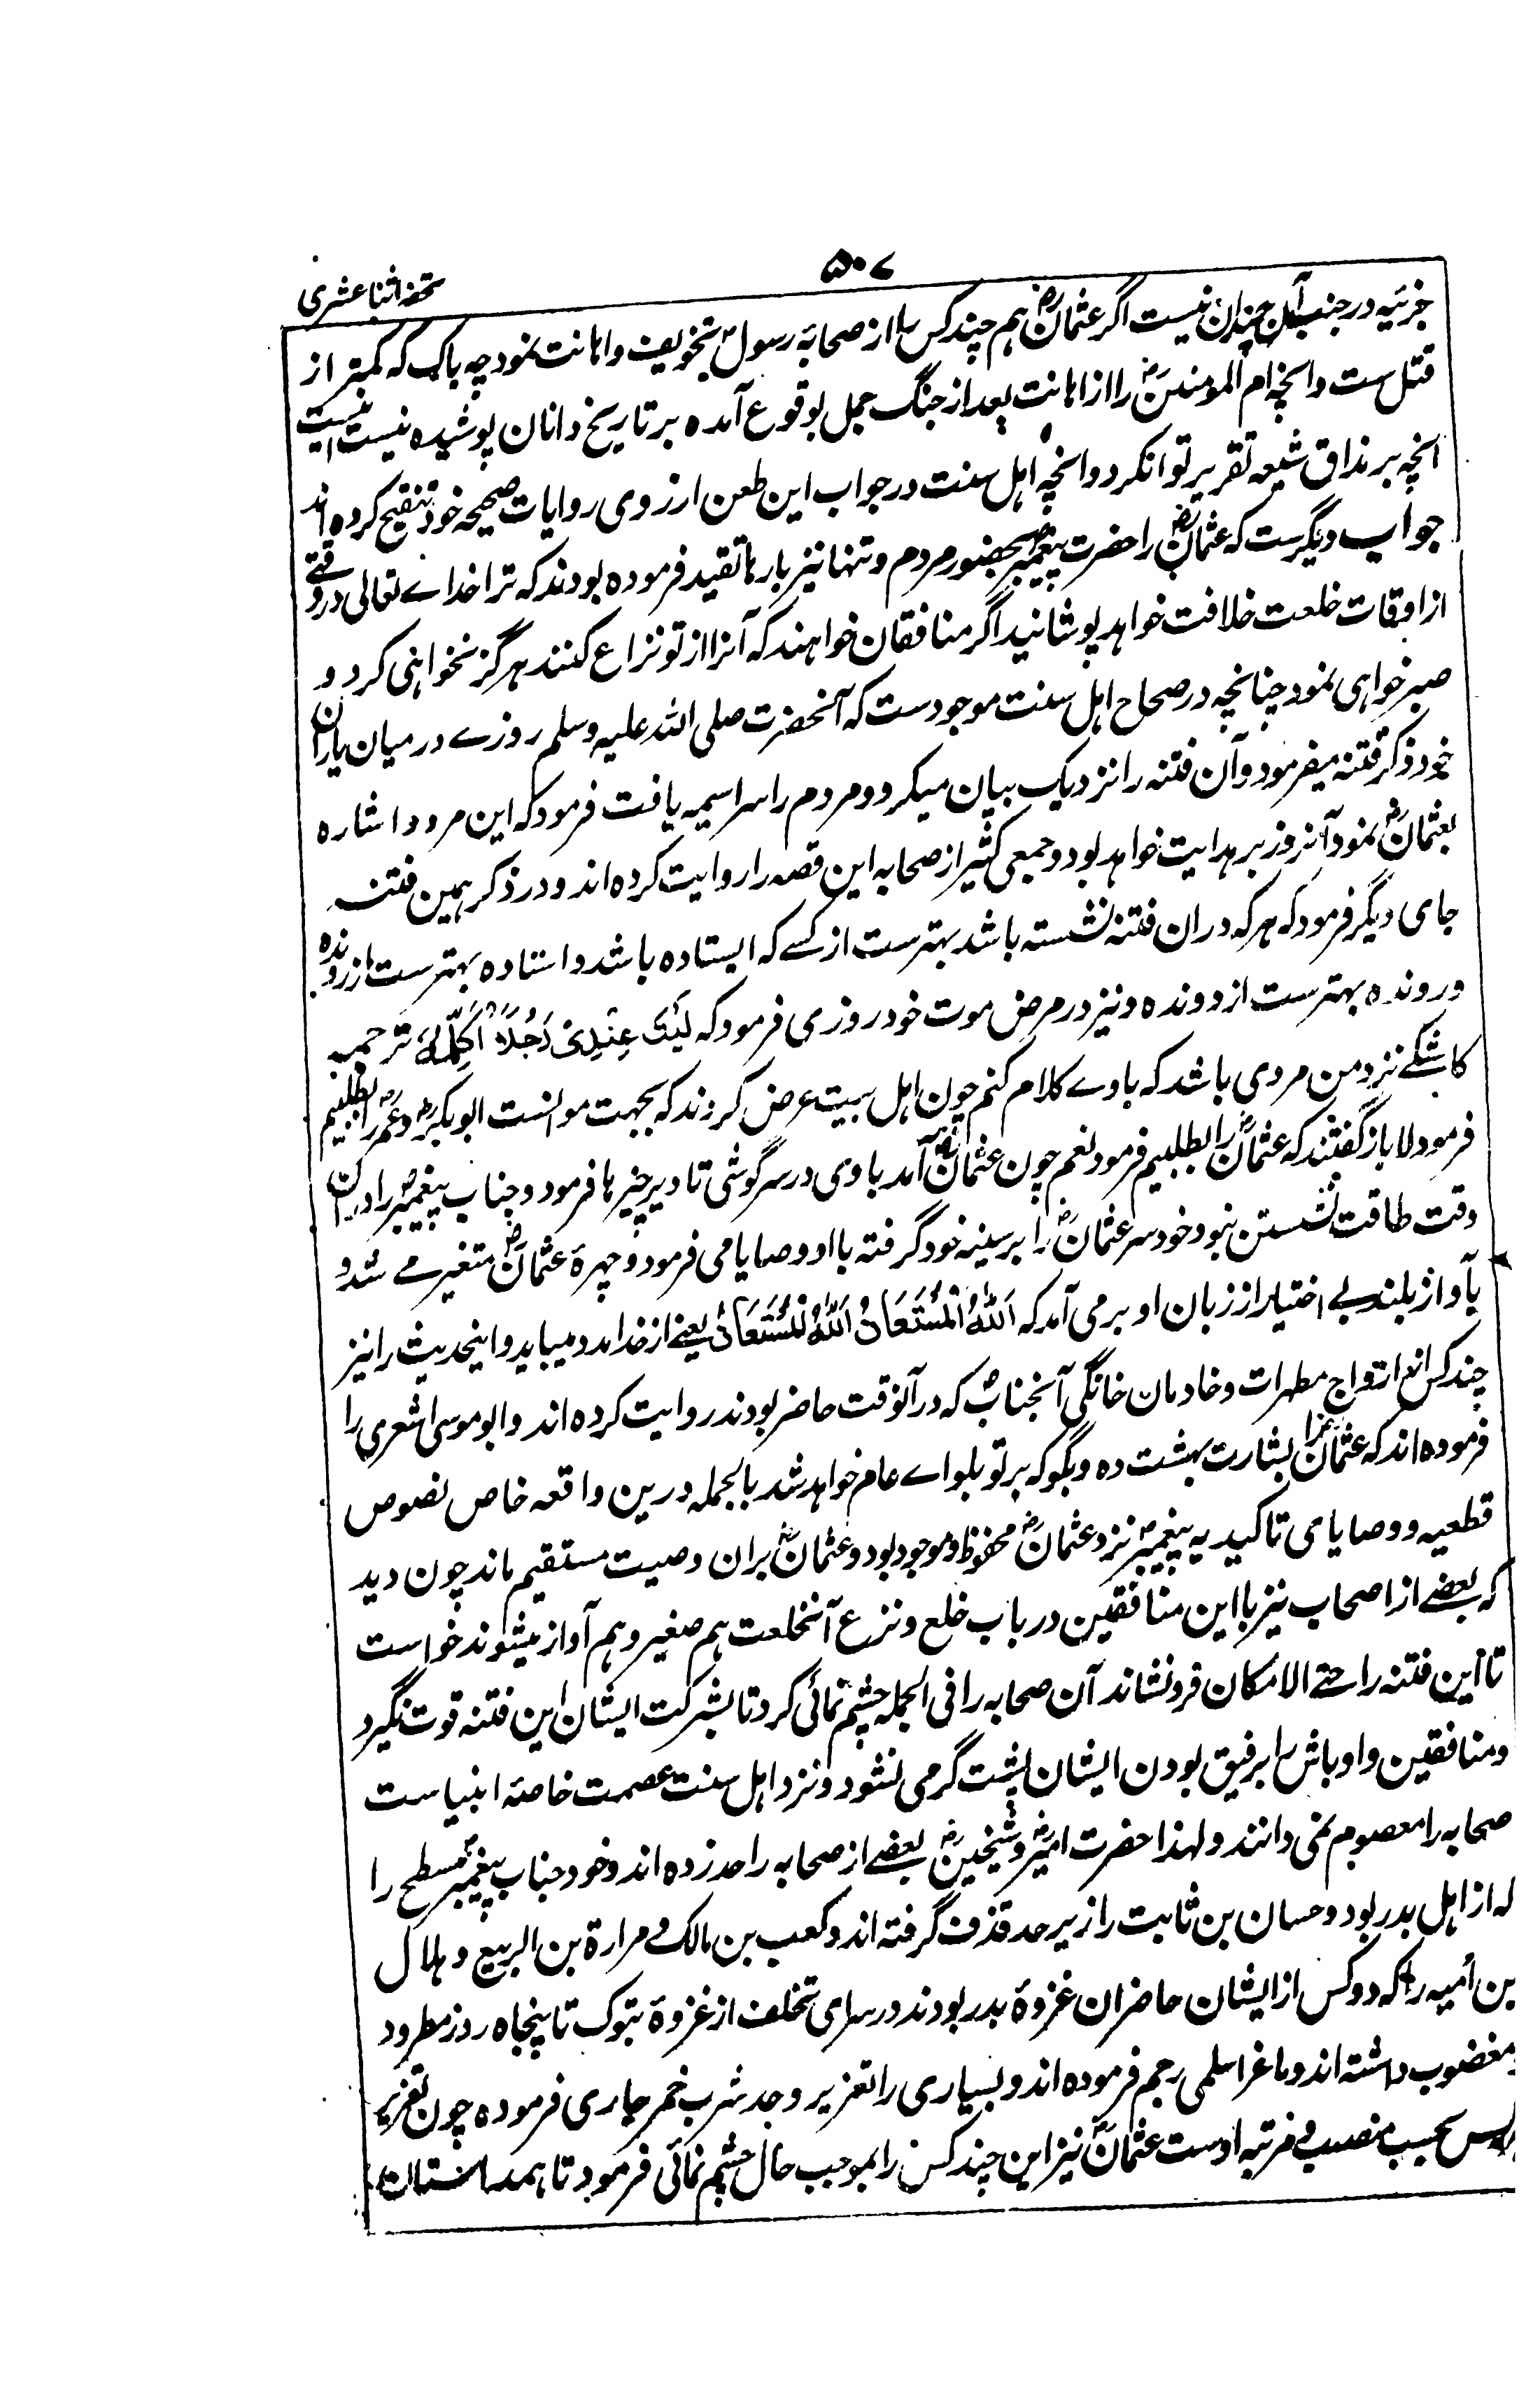 ۵۰۷
تحفه اثنا عشری
جزئیه در جنب آن چندان نیست اگر عثمانؓ هم چند کس را از صحابهٔ رسولؐ بتخویف و اهانت نمود چه باک که کمتر از
قتل ست و آنچه ام المومنینؓ را از اهانت بعد از جنگ جمل بوقوع آمده بر تاریخ دانان پوشیده نیست اینست
آنچه بر مذاق شیعه تقریر توان کرد و آنچه اهل سنت در جواب این طعن از روی روایات صحیحه خود تنقیح کرده اند
جواب دیگرست که عثمانؓ را حضرت پیغمبرؐ بحضور مردم و تنها نیز بارها تقید فرموده بودند که ترا خداے تعالی در وقتے
از اوقات خلعت خلافت خواهد پوشانید اگر منافقان خواهند که آنرا از تو نزاع کنند هرگز نخواهی کرد و
صبر خواهی نمود چنانچه در صحاح اهل سنت موجودست که آنحضرت صلی الله علیه وسلم روزے در میان یاران
خود ذکر فتنه میفرمود و آن فتنه را نزدیک بیان میکرد و مردم را سراسمیه یافت فرمود که این مرد و اشاره
بعثمانؓ نمود آنروز بر هدایت خواهد بود و جمعی کثیر از صحابه این قصه را روایت کرده اند و در ذکر همین فتنه
جای دیگر فرمود که هر که دران فتنه نشسته باشد بهترست از کسے که ایستاده باشد و استاده بهترست از رونده
و رونده بهترست از دونده و نیز در مرض موت خود روزی فرمود که لَیْتَ عِنْدِیْ رَجُلًا اُکَلِّمُهٗ ترجمه
کاشکے نزد من مردی باشد که باوے کلام کنم چون اهل بیت عرض کردند که بجهت موانست ابوبکرؓ و عمرؓ را بطلبیم
فرمود لا باز گفتند که عثمانؓ را بطلبیم فرمود نعم چون عثمانؓ آمد با وی در سرگوشی تا دیر چیزها فرمود و جناب پیغمبرؐ را دران
وقت طاقت نشستن نبود خود سر عثمانؓ را بر سینه خود گرفته با او وصایا می فرمود و چهرهٔ عثمانؓ متغیر مے شد و
بآواز بلند بے اختیار از زبان او بر می آمد که اَللّٰهُ الْمُسْتَعَانُ اَللّٰهُ الْمُسْتَعَانُ یعنے از خدا مدد میباید و اینحدیث را نیز
چند کس از ازواج مطهرات و خادمان خانگی آنجنابؐ که در آنوقت حاضر بودند روایت کرده اند و ابو موسی اشعری را
فرموده اند که عثمانؓ را بشارت بهشت ده و بگو که بر تو بلواے عام خواهد شد بالجمله درین واقعه خاص نصوص
قطعیه و وصایای تاکیدیه پیغمبرؐ نزد عثمانؓ محفوظ و موجود بود و عثمانؓ بران وصیت مستقیم ماند چون دید
که بعضے از اصحاب نیز با این منافقین در باب خلع و نزع آنخلعت هم صغیر و هم آواز میشوند خواست
تا این فتنه را حتے الامکان فرو نشاند آن صحابه را فی الجمله چشم نمائی کرد تا بشرکت ایشان این فتنه قوت نگیرد
و منافقین و اوباش را برفیق بودن ایشان پشت گرمی نشود و نزد اهل سنت عصمت خاصهٔ انبیاست
صحابه را معصوم نمی دانند و لهذا حضرت امیرؓ و شیخینؓ بعضے از صحابه را حد زده اند و خود جناب پیغمبرؐ مسطح را
که از اهل بدر بود و حسان بن ثابت را زیر حد قذف گرفته اند و کعب بن مالک و مرارة بن الربیع و هلال
بن أمیه را که دو کس از ایشان حاضران غزوهٔ بدر بودند در سرای تخلف از غزوهٔ تبوک تا پنجاه روز مطرود
و مغضوب داشته اند و ماعز اسلمی رجم فرموده اند و بسیاری را تعزیر و حد شرب خمر جاری فرموده چون تعزیر
هرکس بحسب منصب و مرتبه اوست عثمانؓ نیز این چند کس را بموجب حال چشم نمائی فرمود تا همداستان